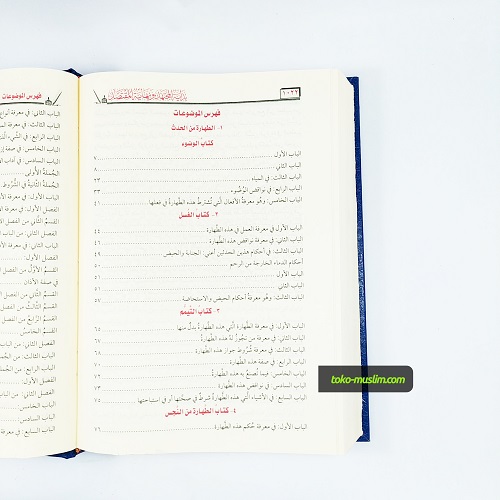 بداية المجتهد ونهاية المقتصد
١٠٢٢
فهرس الموضوعات
١- الطهارة من الحدث
كتاب الوضوء
الباب الأول ٧
الباب الثاني ٨
الباب الثالث: في المياه ٢٣
الباب الرابع: في نواقض الوُضُوء ٣٣
الباب الخامس: وهُو معرفةُ الأفعال الَّتي تُشترَطُ هذه الطَّهارةُ في فعلها ٤١
٢- كتاب الغسل
الباب الأول في معرفة العمل في هذه الطَّهارة ٤٤
الباب الثاني: في معرفة نواقض هذه الطَّهارة ٤٦
الباب الثالث: في أحكام هذين الحدثين أعني: الجنابة والحيض ٤٩
أحكام الدماء الخارجة من الرحم ٥٠
الباب الأول ٥١
الباب الثاني ٥٢
الباب الثالث: وهُو معرفةُ أحكام الحيض والاستحاضة ٥٧
٣- كتاب التيمم
الباب الأول: في معرفة الطَّهارة الَّتي هذه الطَّهارةُ بدلٌ منها ٦٥
الباب الثاني: في معرفة من تجُوزُ لهُ هذه الطَّهارةُ ٦٧
الباب الثالث: في معرفة شُرُوط جواز هذه الطَّهارة ٦٨
الباب الرابع: في صفة هذه الطَّهارة ٧٠
الباب الخامس: فيما تُصنعُ به هذه الطَّهارةُ ٧٢
الباب السادس: في نواقض هذه الطَّهارة ٧٣
الباب السابع: في الأشياء الَّتي هذه الطَّهارةُ شرطٌ في صحَّتها أو في استباحتها ٧٥
٤- كتاب الطهارة من النجس
الباب الأول: في معرفة حُكم هذه الطَّهارة ٧٦
فهرس الموضوعات
الباب الثاني: في معرفة أنواع
الباب الثالث: في معرفة
الباب الرابع: في الشَّيء
الباب الخامس: في صفة
الباب السادس: في آداب
الجُملةُ الأولى
الجُملةُ الثَّانيةُ في الشُّرُوط
الفصل الأول: في معرفة
القسمُ الثَّاني من الفصل
الفصل الثاني: من الباب
الباب الثاني: في معرفة الأذان
الفصل الأول:
القسمُ الأوَّلُ من الفصل
في صفة الأذان
القسمُ الثَّاني من الفصل
القسمُ الثَّالثُ من الفصل
القسمُ الرَّابعُ من الفصل
القسمُ الخامسُ
الفصل الثاني: من الباب
الباب الثالث:
الباب الرابع: من
الفصل الأول:
الفصل الثاني:
الباب الخامس:
الباب السادس:
الباب السابع: في معرفة
toko-muslim.com